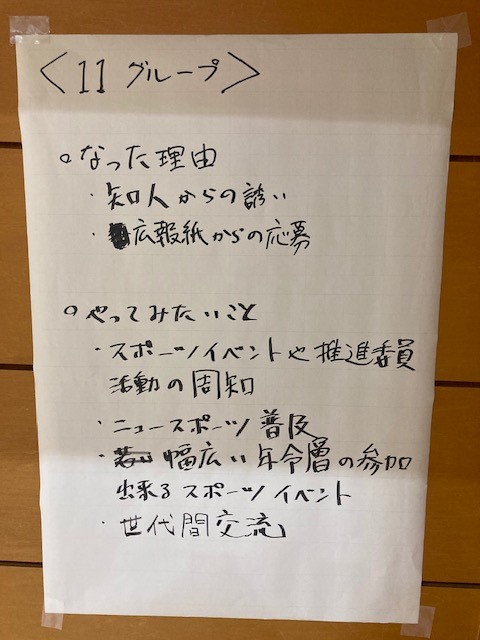 〈11 グループ〉
○なった理由
・知人からの誘い
・広報紙からの応募
○やってみたいこと
・スポーツイベントや推進委員
活動の周知
・ニュースポーツ普及
・幅広い年令層の参加
出来るスポーツイベント
・世代間交流